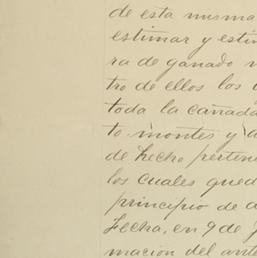 de esta misma
estimar y esti
ra de ganado
tro de ellos los
toda la cañada
to montes y
de hecho pertene
los cuales qued
principio de
Fecha, en 9 de
macion del ante